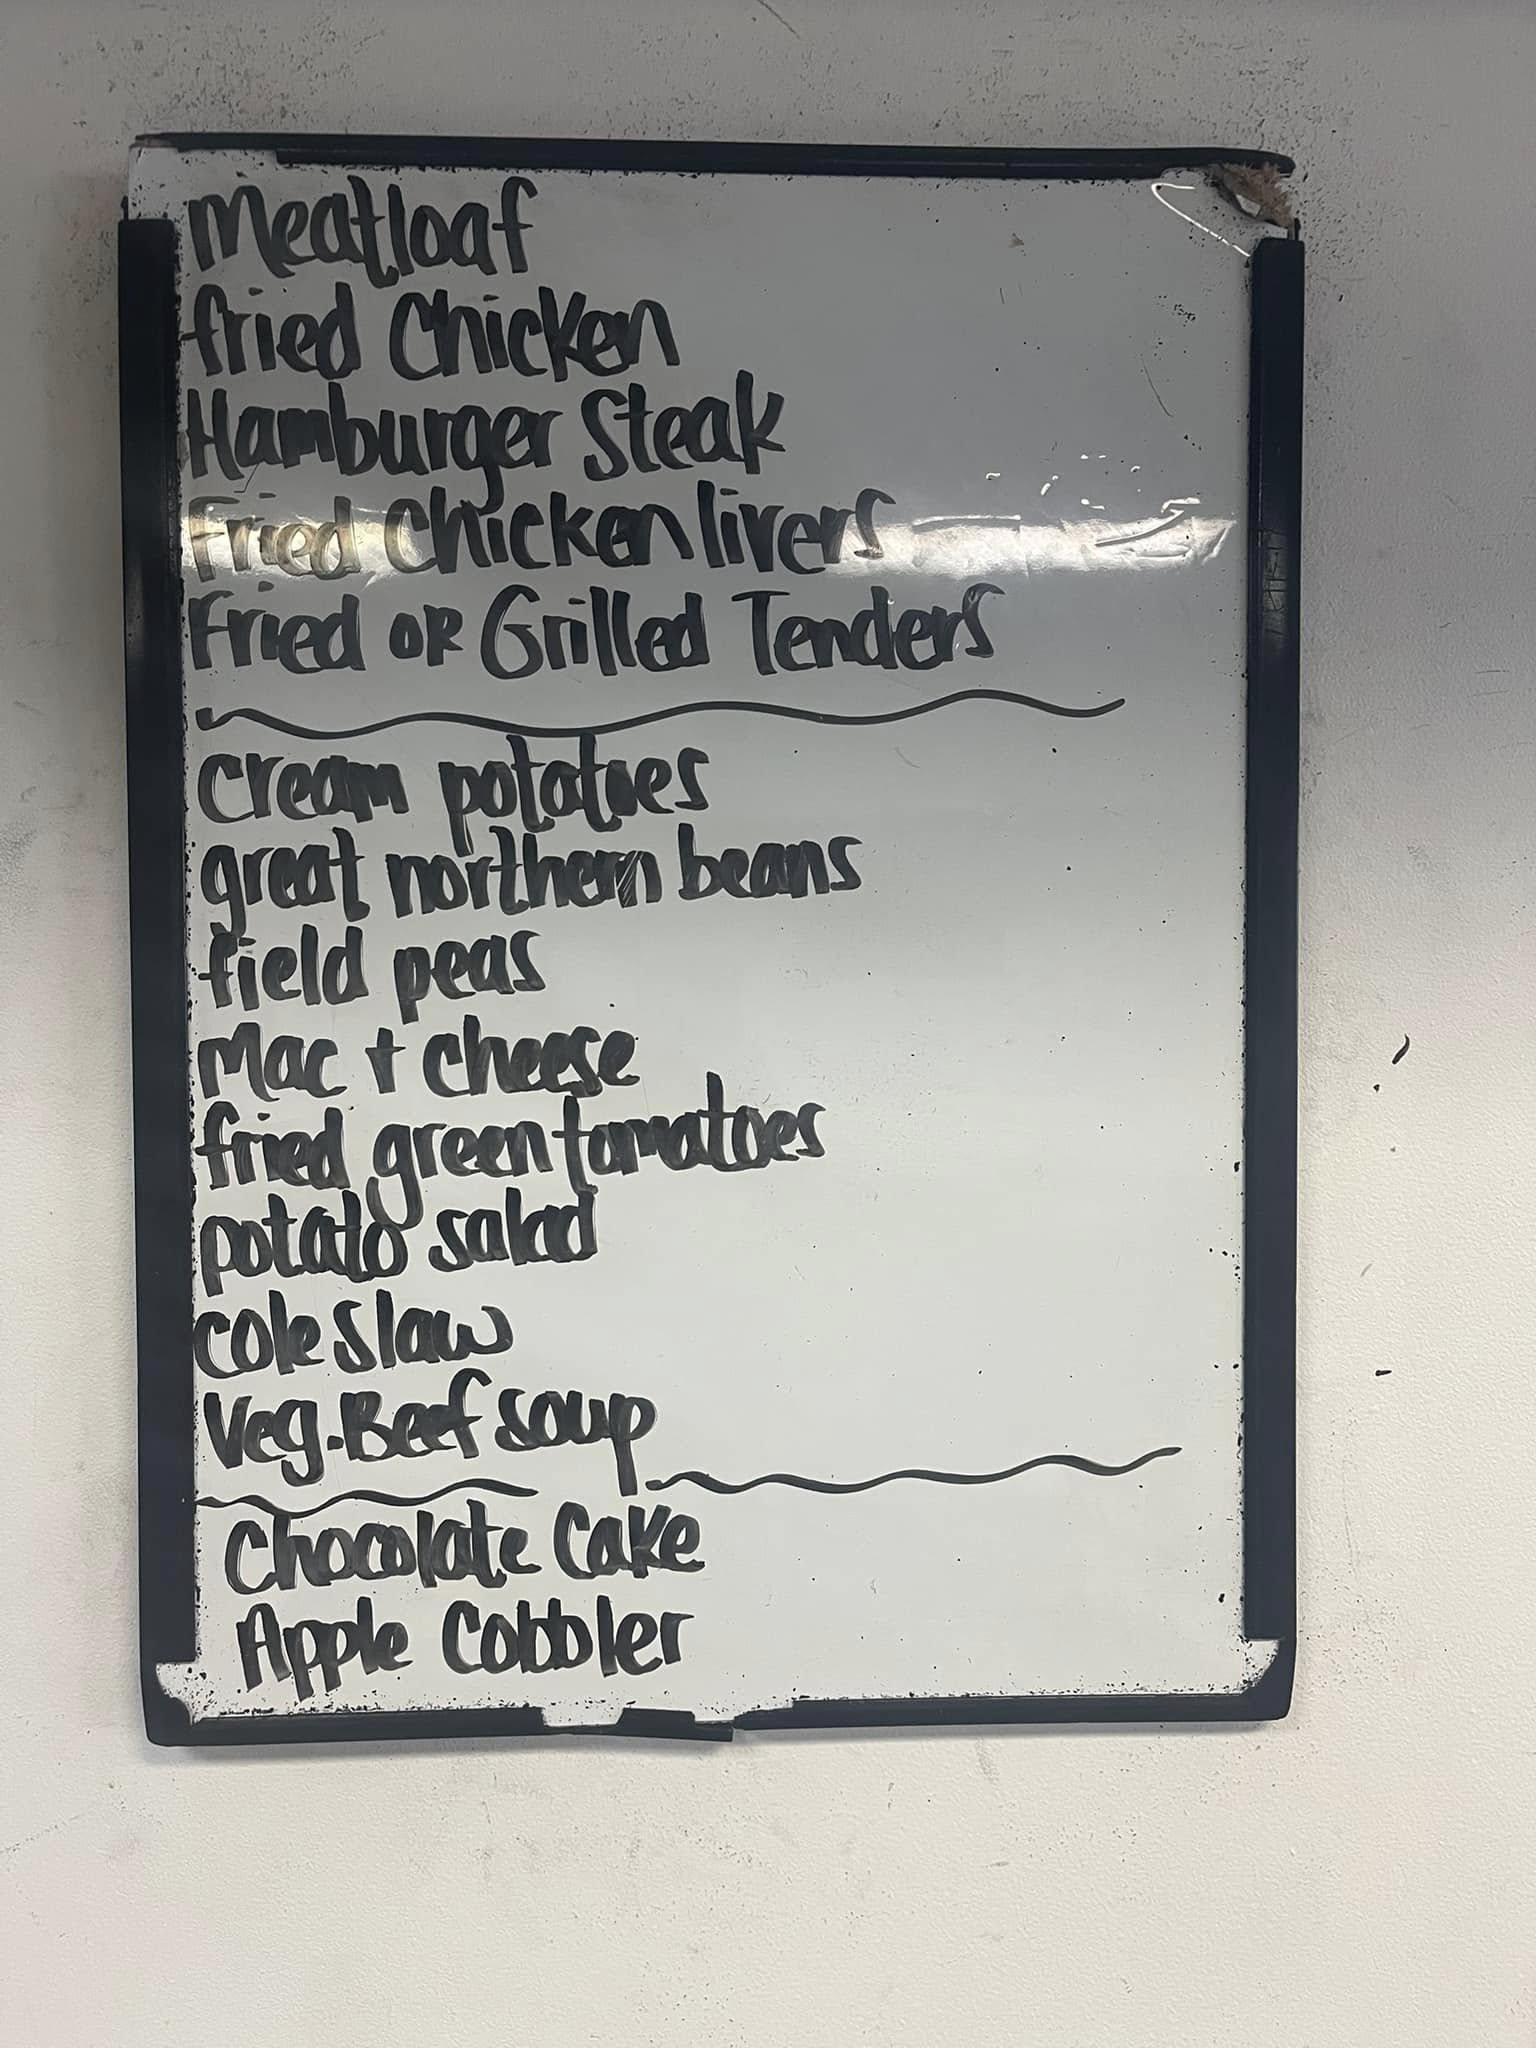 Meatloaf
fried Chicken
Hamburger Steak
Fried Chicken livers
Fried OR Grilled Tenders
cream potatoes
great northern beans
field peas
Mac + cheese
fried green tomatoes
potato salad
cole slaw
Veg. Beef soup
Chocolate Cake
Apple Cobbler